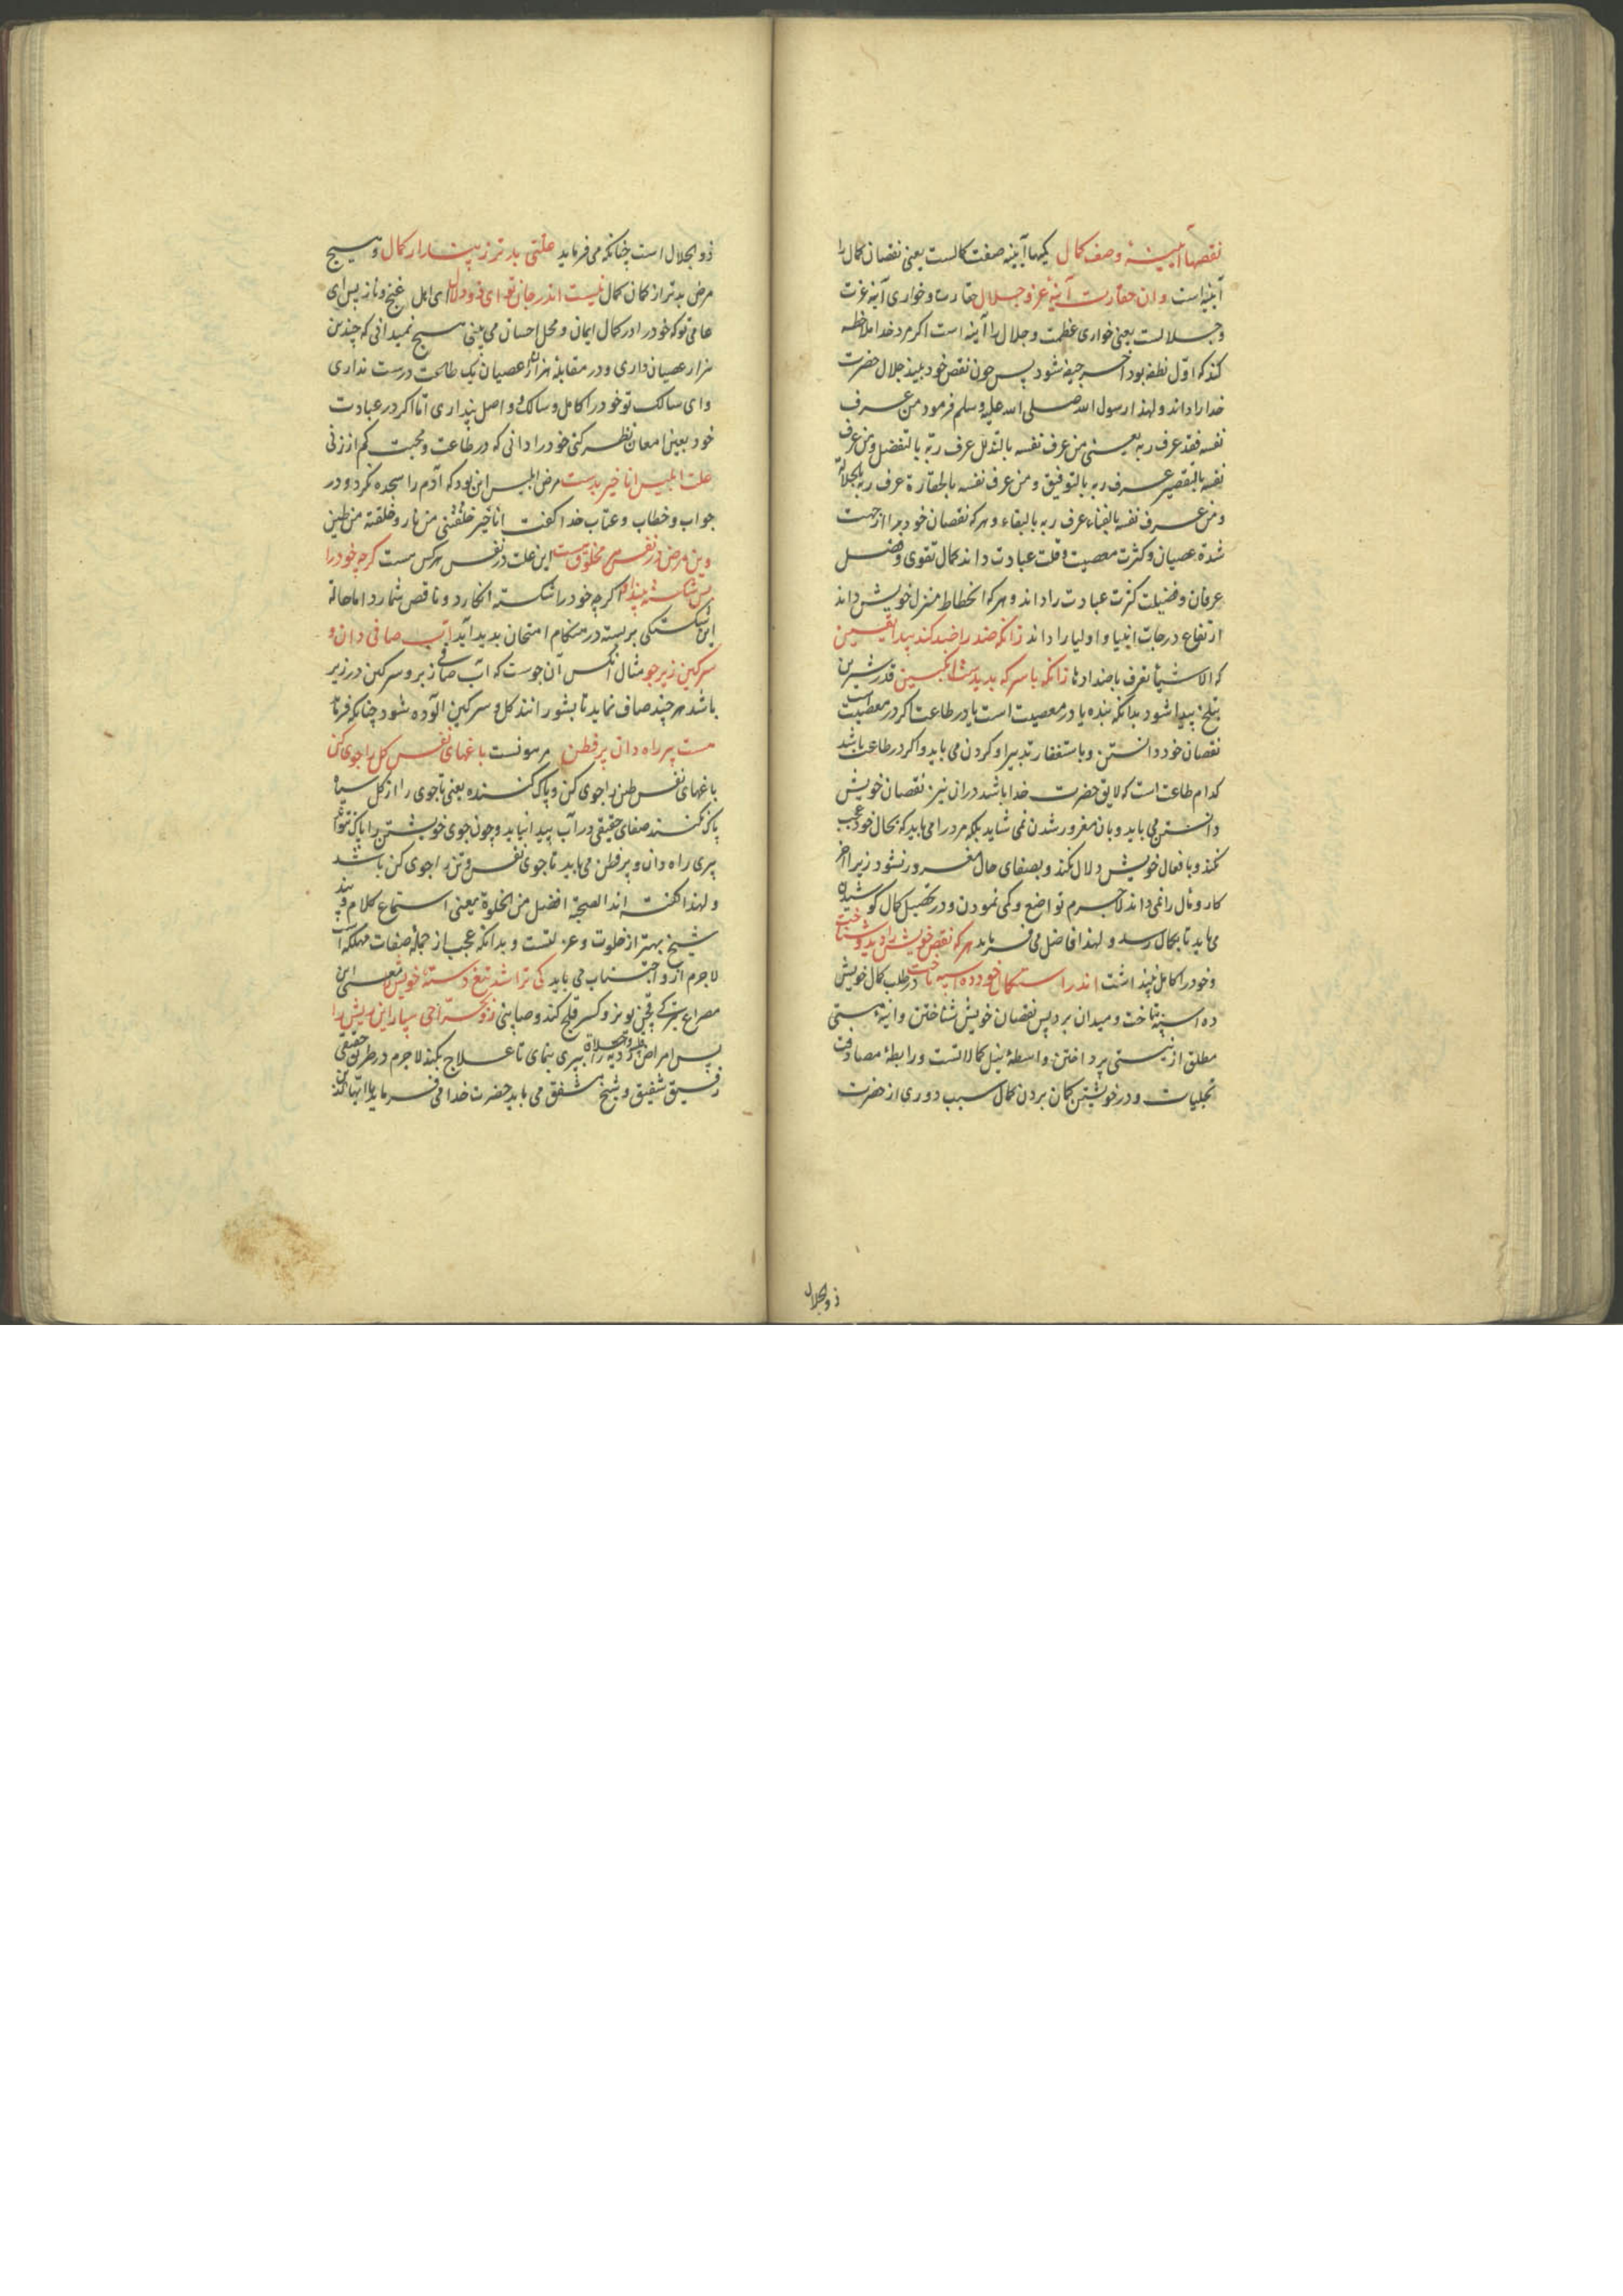 نقصها آیینهٔ وصف کمال کیمها آیینه صفت کمالست یعنی نقصان کمال را
آینه است وان حقارت آینهٔ عز و جلال حقارت و خواری آینه عزت
و جلالست یعنی خواری عظمت و جلال را آینه است اکر مرد خدا ملاحظه
کند که اول نطفه بود آخر جیفه شود پس چون نقص خود بیند جلال حضرت
خدا را داند و لهذا رسول الله صلی الله علیه و سلم فرمود من عرف
نفسه فقد عرف ربه یعنی من عرف نفسه بالتذلل عرف ربه بالتفضل و من عرف
نفسه بالتقصیر عرف ربه بالتوفیق و من عرف نفسه بالحقارة عرف ربه بالجلالة
و من عرف نفسه بالفناء عرف ربه بالبقاء و هر که نقصان خود را از جهت
شدة عصیان و کثرت معصیت و قلت عبادت داند کمال تقوی و فضل
عرفان و فضیلت کثرت عبادت را داند و هر که انحطاط منزل خویش داند
ارتفاع درجات انبیا و اولیا را داند زانکه ضد را ضد کند پیدا یقین
که الاشیاء تعرف باضدادها زانکه با سرکه پدیدست انکبین قدر شیرین
بتلخ پیدا شود بدانکه بنده یا در معصیت است یا در طاعت اکر در معصیت است
نقصان خود دانستن و باستغفار تدبیر او کردن می باید و اکر در طاعت باشد
کدام طاعت است که لایق حضرت خدا باشد دران نیز نقصان خویش
دانستن می باید و بان مغرور شدن نمی شاید بلکه مرد را می باید که بحال خود عجب
نکند و بافعال خویش دلال نکند و بصفای حال مغرور نشود زیرا آخر
کار و مآل را نمی داند لاجرم تواضع و کمی نمودن و در تحصیل کمال کوشیدن
می باید تا بکمال رسد و لهذا فاضل می فرماید هر که نقص خویش را دید و شناخت
و خود را کامل نپنداشت اندر استکمال خود دو اسپه تاخت در طلب کمال خویش
ده اسپه تاخت و میدان برد پس نقصان خویش شناختن و اینهٔ هستی
مطلق از نیستی پرداختن واسطهٔ نیل کمالاتست و رابطهٔ مصادفت
تجلیات و در خویشتن کمان بردن کمال سبب دوری از حضرت
ذوالجلال
ذوالجلال است چنانکه می فرماید علتی بدتر ز پندار کمال و هیچ
مرض بدتر از کمان کمال نیست اندر جان تو ای ذو دلال ای اهل غنج و ناز پس ای
عامی تو که خود را در کمال ایمان و محل احسان می بینی هیچ نمیدانی که چندین
هزار عصیان داری و در مقابلهٔ هزاران عصیان یک طاعت درست نداری
و ای سالک تو خود را کامل و سالک و واصل پنداری اما اکر در عبادت
خود بعین امعان نظر کنی خود را دانی که در طاعت و محبت کم از زنی
علت ابلیس انا خیر بدست مرض ابلیس این بود که آدم را سجده نکرد و در
جواب و خطاب و عتاب خدا کفت انا خیر خلقتنی من نار و خلقته من طین
وین مرض در نفس هر مخلوق هست این علت در نفس هر کس هست کرچه خود را
بس شکسته بیند او اکرچه خود را شکسته انکارد و ناقص شمارد اما حاله
این شکستکی بربسته در هنکام امتحان پدید آید آب صافی دان و
سرکین زیر جو مثال آنکس آن جوست که آب صافی زبر و سرکین در زیر
باشد هر چند صاف نماید تا بشورانند کل و سرکین آلوده شود چنانکه فرماید
هست پیر راه دان پر فطن رهنمونست باغهای نفس کل را جوی کن
باغهای نفس و طن را جوی کن و پاک کننده یعنی تا جوی را از کل سیاه
پاک نکنند صفای حقیقی در آب پیدا نیاید و چون جوی خویشتن را پاک نتواند
پیری راه دان و پر فطن می باید تا جوی نفس و تن را جوی کن باشد
و لهذا کفته اند الصحبة افضل من الخلوة یعنی استماع کلام و پند
شیخ بهتر از خلوت و عزلتست و بدانکه عجب از جملهٔ صفات مهلکه است
لاجرم از و اجتناب می باید کی تراشد تیغ دستهٔ خویش معنی این
رو بجراحی سپار این ریش را
پس امراض قلب و ردیه را به پیری بنمای تا علاج بکند لاجرم در طریق حقیقی
رفیق شفیق و شیخ مشفق می باید حضرت خدا می فرماید یا ایها الذین